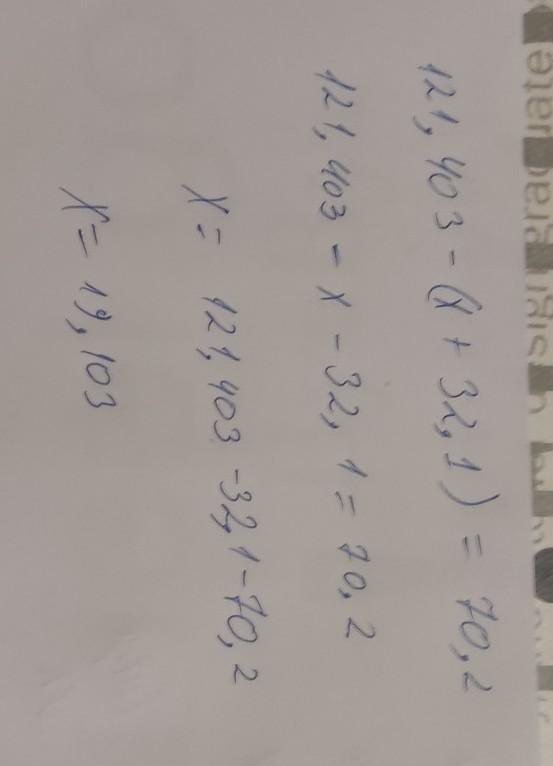 121,403 - (x + 32,1) = 70,2
121,403 - x - 32,1 = 70,2
x = 121,403 - 32,1 - 70,2
x = 19,103